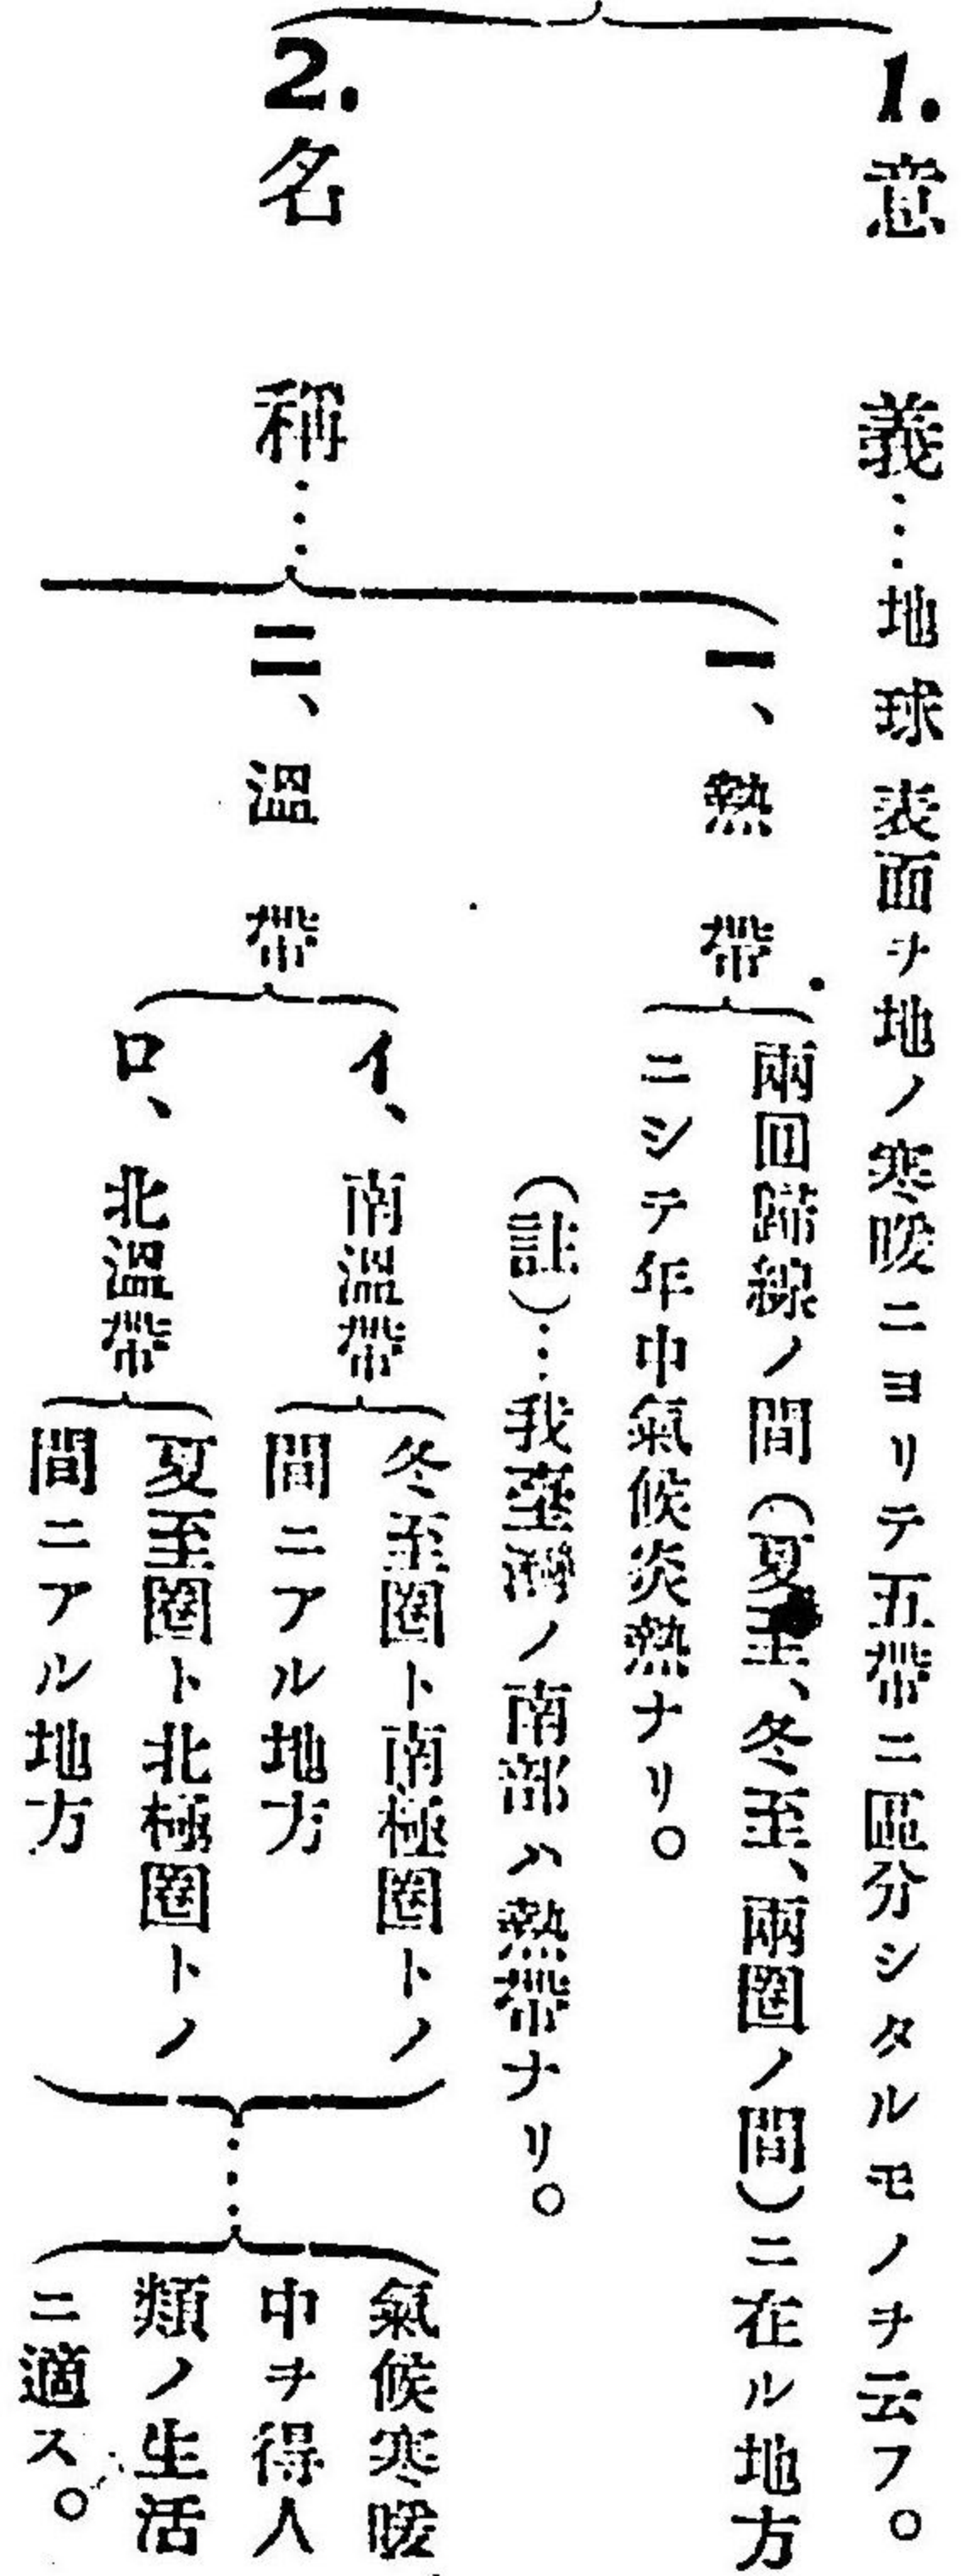 1.意義…地球表面ヲ地ノ寒暖ニヨリテ五帶ニ區分シタルモノヲ云フ。
2.名稱…
一、熱帶
兩回歸線ノ間(夏至、冬至、兩圏ノ間)ニ在ル地方
ニシテ年中氣候炎熱ナリ。
(註)…我臺灣ノ南部ハ熱帶ナリ。
二、溫帶
イ、南溫帶
冬至圏ト南極圏トノ
間ニアル地方
ロ、北溫帶
夏至圏ト北極圏トノ
間ニアル地方
氣候寒暖
中ヲ得人
類ノ生活
ニ適ス。